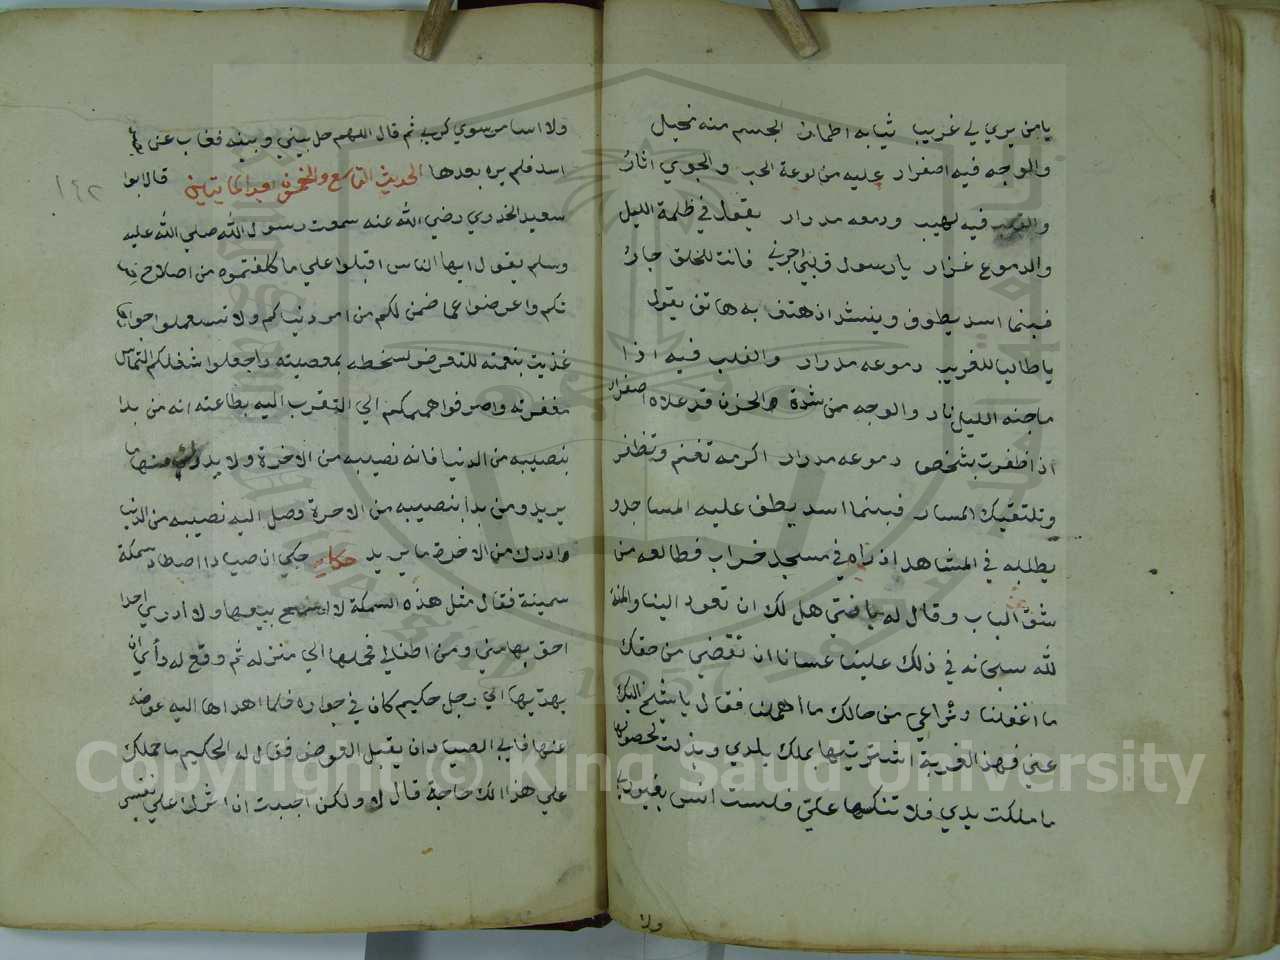 يا من يري لي غريب ثيابه اطمار الجسم منه نحيل
والوجه فيه اصفرار عليه من لوعة الحب والجوي اثار
والقلب فيه لهيب ودمعه مدرار يقول في ظلمة الليل
والدموع غزار يا رسول قربني اجرني فانت للخلق جار
فبينما اسد يطوف وينشد اذ هتف به هاتف يقول
يا طالبا للغريب دموعه مدرار والقلب فيه اذا
ما جنه الليل نار والوجه من شدة الحزن قد علاه اصفرار
اذا ظفرت بشخص دموعه مدرار اكرمه تغنم وتظافر
وتلتقيك المسار فبينما اسد يطف عليه المساجد و
يطلبه في المشاهد اذ راه في مسجد خراب فطالعه من
شق الباب وقال له يا فتي هل لك ان تعود الينا والمنة
لله سبحانه في ذلك علينا عسانا ان نقضي من حقك
ما اغفلنا ونراعي من حالك ما اهملنا فقال يا شيخ اليك
عني فهذا القربة اشتريتها بملك يلدي وبذلت لحصولها
ما ملكت يدي فلا تنكسها علي فلست انس بغير
ولا
ولا اسامر سوي كربي ثم قال اللهم حل بيني وبينه فغاب عن
اسد فلم يره بعدها الحديث التاسع والخمسون قال ابوا
سعيد الخدري رضي الله عنه سمعت رسول الله صلي الله عليه
وسلم يقول ايها الناس اقبلوا علي ما كلفتموه من اصلاح
تكم واعرضوا عما ضمن لكم من امر دنياكم ولا تستعملوا جوارح
غذيت بنعمته للتعرض لسخطه بمعصيته واجعلوا شغلكم التماس
مغفرته واصرفوا هممكم الي التقرب اليه بطاعته انه من بدا
بنصيبه من الدنيا فانه نصيبه من الاخرة ولا يدرك منها ما
يريد ومن بدا بنصيبه من الاخرة وصل اليه نصيبه من الدنيا
وادرك من الاخرة ما يريد حكاية حكي ان صيادا اصطاد سمكة
سمينة فقال مثل هذه السمكة لا ينبغي بيعها ولا ادري احدا
احق بها مني ومن اطفالي فحملها الي منزله ثم وقع له رأي ان
يهديها الي رجل حكيم كان في جواره فلما اهداها اليه عوضه
عنها فابي الصياد ان يقبل العوض فقال له الحكيم ما حملك
علي هذا الك حاجة قال لا ولكن احببت ان اثرك علي نفسي
١٤٢
Copyright © King Saud University